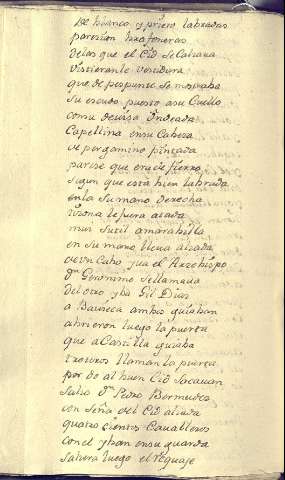 De blanco y prieto labradas
parecian
de las que el Cid se calzava
vistieronle vestidura
que de pespunte se mostraba
su escudo puesto asu Cuello
con su devisa ondeada
Capellina en su Cabeza
de pergamino pintada
parese que era de fierro
segun que està bien labrada
en la su mano derecha
tizona le fuera atada
mui sutil a marabilla
en su mano lleva alzada
de un Cabo yva el Arzobispo
Dn. Geronimo se llamava
del otro yba Gil Dias
a Bavieca ambos guiaban
abrieron luego la puerta
que a Castilla guiaba
llaman la puerta
por do al buen Cid sacavan
Salio Dn. Pedro Bermudez
con seña del Cid alzada
quatro cientos Cavalleros
con el yban en su guarda
saliera luego el reguaje